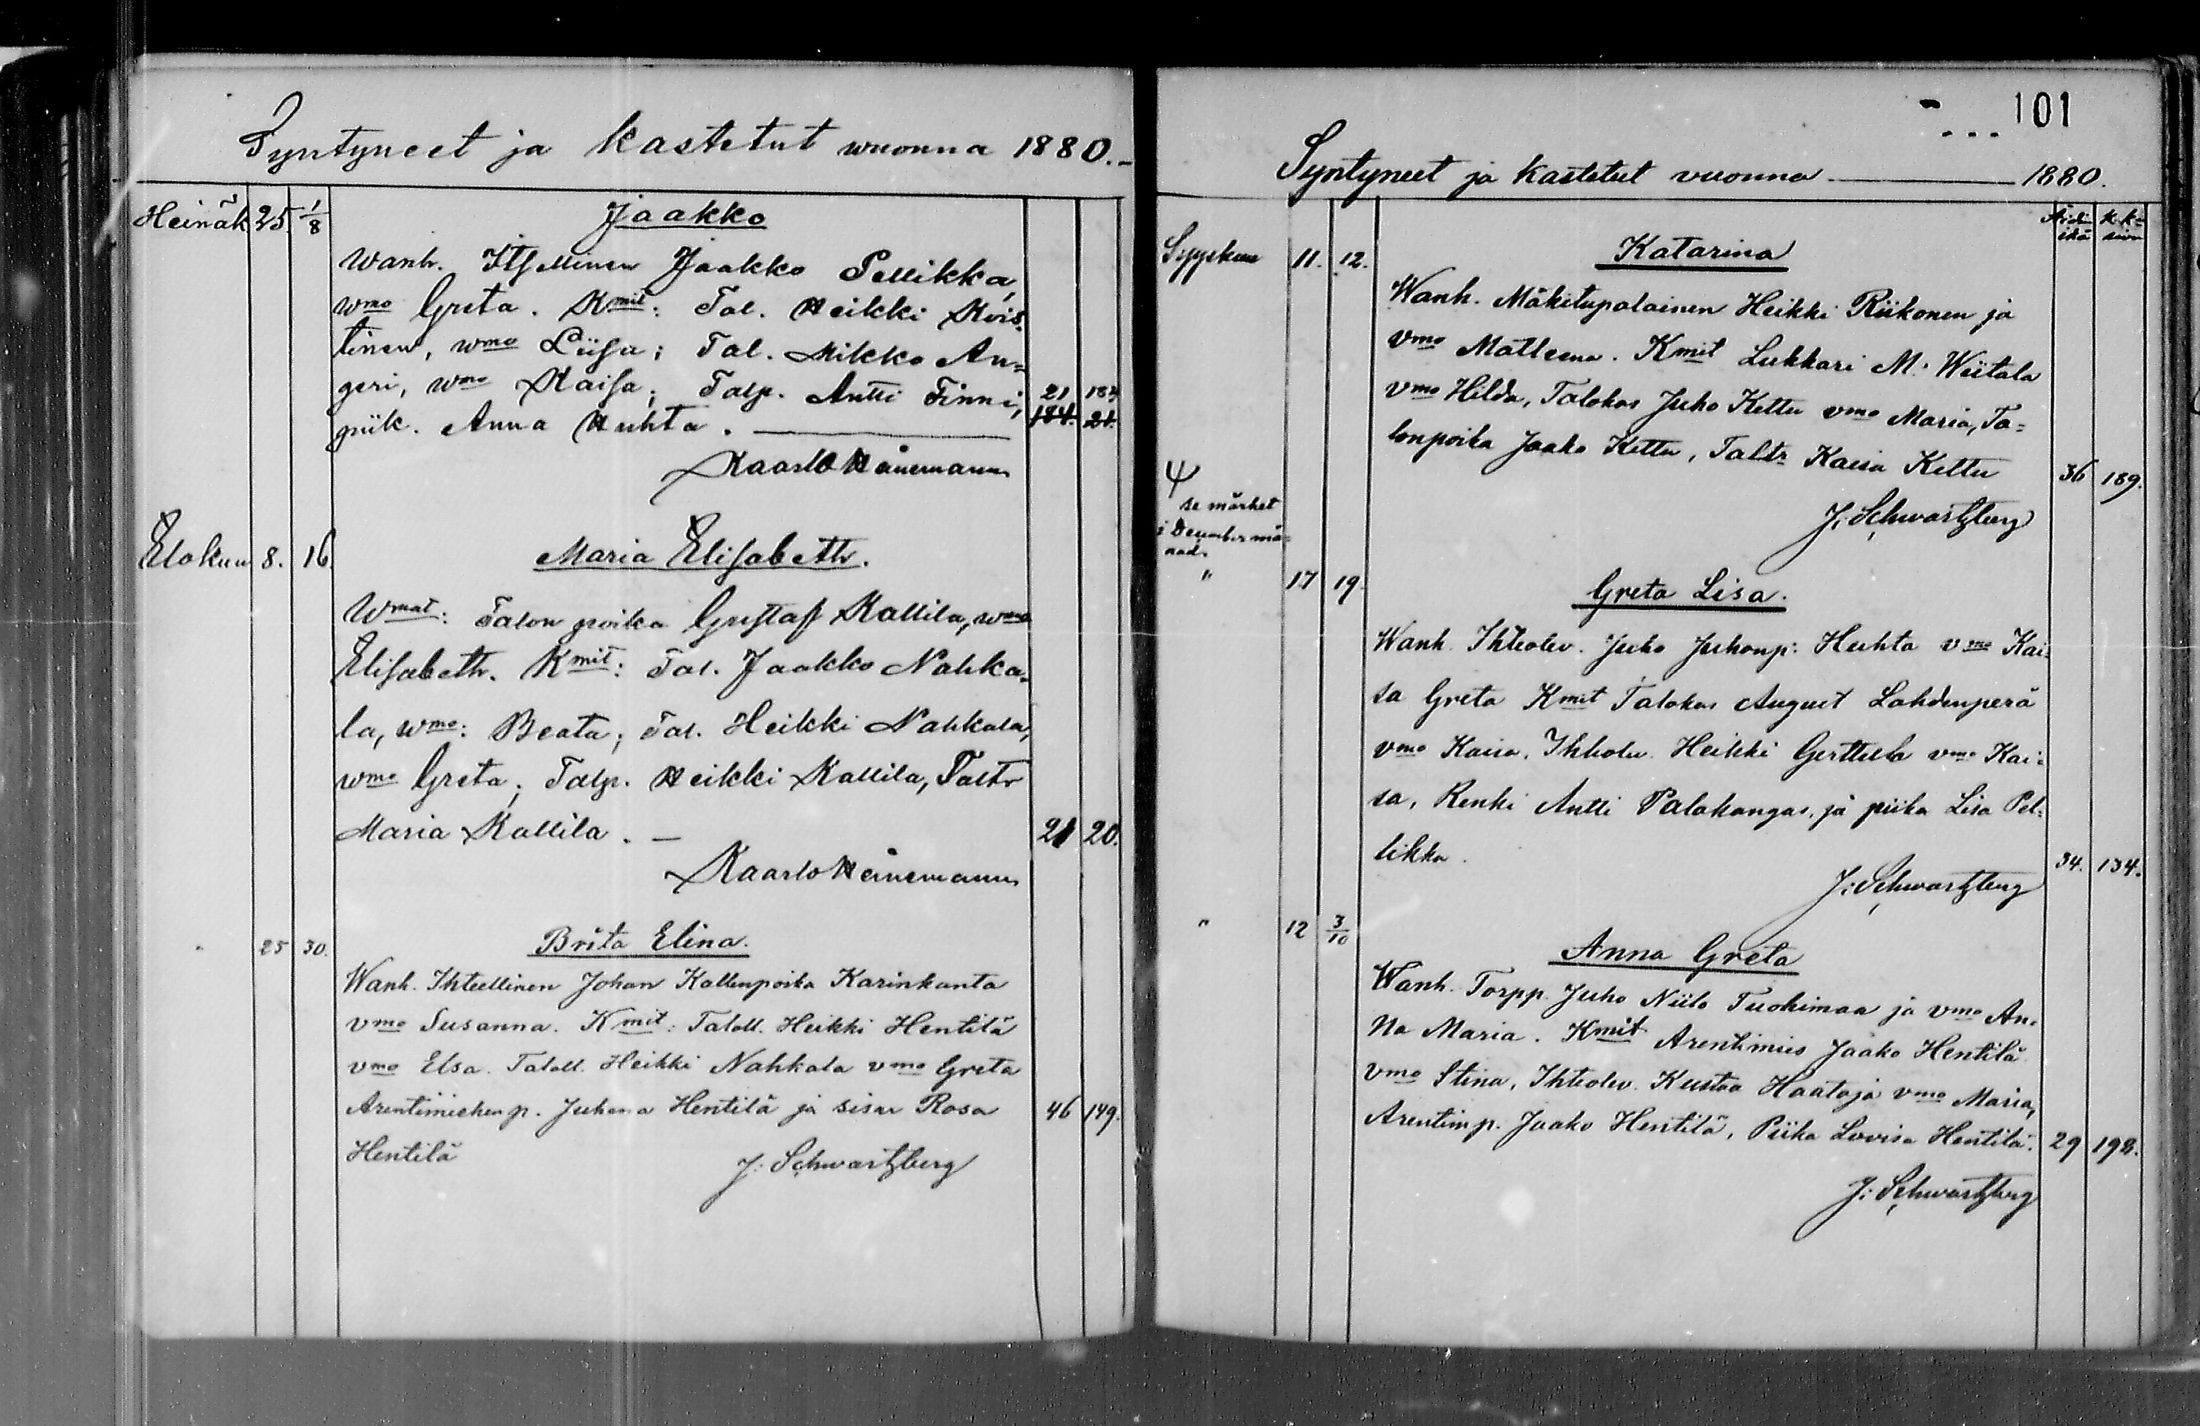 Syntyneet ja kastetut wuonna 1880.
Heinäk 25 1/8 Jaakko
Wanh. Itsellinen Jaakko Pellikka,
wmo Greta. Kmit: Tal. Heikki Kois-
tinen, wmo Liisa; Tal. Mikko An=
geri, wmo Kaisa; Talp. Antti Finni, 21 184
piik. Anna Huhta. 184. 21.
Kaarlo Heinemann
Elokuu 8. 16 Maria Elisabeth.
Wmat: Talon poika Gustaf Kallila, wmo
Elisabeth. Kmit: Tal. Jaakko Nahka-
la, wmo: Beata; Tal. Heikki Nahkala,
wmo Greta; Talp. Heikki Kallila, Taltr
Maria Kallila. 21 20.
Kaarlo Heinemann
" 25 30. Brita Elina.
Wanh. Ihteellinen Johan Kallenpoika Karinkanta
vmo Susanna. Kmit: Taloll. Heikki Hentilä
vmo Elsa. Taloll. Heikki Nahkala vmo Greta
Arentimiehen p. Juhana Hentilä ja sisar Rosa 46 149.
Hentilä
J: Schwartzberg
101
Syntyneet ja kastetut vuonna 1880.
Äidin ikä
Syyskuu 11. 12. Katarina
Wanh. Mäkitupalainen Heikki Riikonen ja
vmo Matleena. Kmit Lukkari M. Wiitala
vmo Hilda, Talokas Juho Kettu vmo Maria, Ta=
lonpoika Jaako Kettu, Taltr Kaisa Kettu 36 189.
J: Schwartzberg
se märket
i December må=
nad.
" 17 19. Greta Lisa.
Wanh. Ihteolev. Juho Juhonp: Huhta vmo Kai=
sa Greta Kmit Talokas August Lahdenperä
vmo Kaisa, Ihteolev. Heikki Gerttula vmo Kai=
sa, Renki Antti Palokangas, ja piika Lisa Pel=
likka. 34. 134.
J: Schwartzberg
" 12 3/10 Anna Greta
Wanh. Torpp. Juho Niilo Tuohimaa ja vmo An=
na Maria. Kmit Arentimies Jaako Hentilä
vmo Stina, Ihteolev. Kustaa Haataja vmo Maria,
Arentim p. Jaako Hentilä, Piika Lovisa Hentilä. 29 198.
J: Schwartzberg